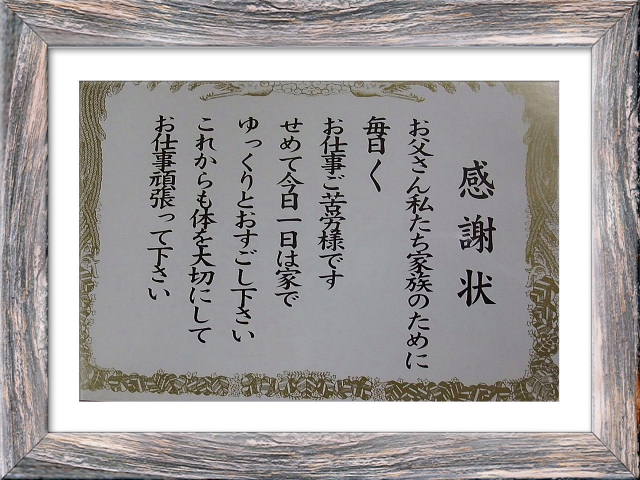 感謝状
お父さん私たち家族のために
毎日く
お仕事ご苦労様です
せめて今日一日は家で
ゆっくりとおすごし下さい
これからも体を大切にして
お仕事頑張って下さい